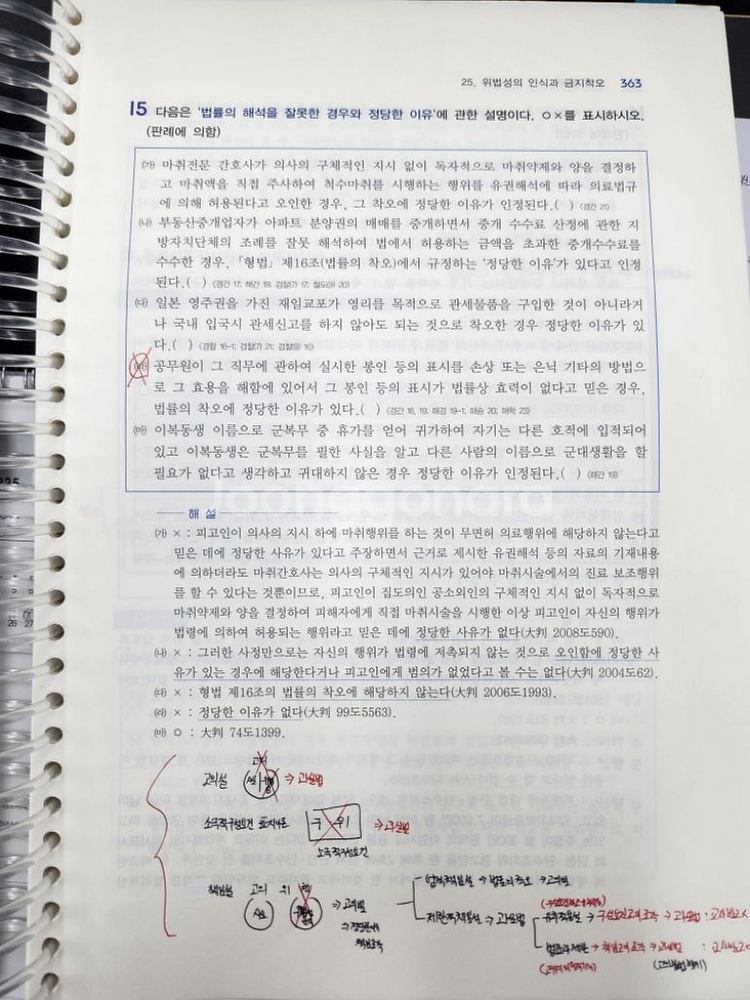 25. 위법성의 인식과 금지착오 363
15 다음은 '법률의 해석을 잘못한 경우와 정당한 이유'에 관한 설명이다. ○×를 표시하시오.
(판례에 의함)
㈎ 마취전문 간호사가 의사의 구체적인 지시 없이 독자적으로 마취약제와 양을 결정하
고 마취액을 직접 주사하여 척수마취를 시행하는 행위를 유권해석에 따라 의료법규
에 의해 허용된다고 오인한 경우, 그 착오에 정당한 이유가 인정된다.( ) (경간 21)
㈏ 부동산중개업자가 아파트 분양권의 매매를 중개하면서 중개 수수료 산정에 관한 지
방자치단체의 조례를 잘못 해석하여 법에서 허용하는 금액을 초과한 중개수수료를
수수한 경우, 「형법」 제16조(법률의 착오)에서 규정하는 '정당한 이유'가 있다고 인정
된다.( )
㈐ 일본 영주권을 가진 재일교포가 영리를 목적으로 관세물품을 구입한 것이 아니라거
나 국내 입국시 관세신고를 하지 않아도 되는 것으로 착오한 경우 정당한 이유가 있
다.( )
㈑ 공무원이 그 직무에 관하여 실시한 봉인 등의 표시를 손상 또는 은닉 기타의 방법으
로 그 효용을 해함에 있어서 그 봉인 등의 표시가 법률상 효력이 없다고 믿은 경우,
법률의 착오에 정당한 이유가 있다.( )
㈒ 이복동생 이름으로 군복무 중 휴가를 얻어 귀가하여 자기는 다른 호적에 입적되어
있고 이복동생은 군복무를 필한 사실을 알고 다른 사람의 이름으로 군대생활을 할
필요가 없다고 생각하고 귀대하지 않은 경우 정당한 이유가 인정된다.( ) (해간 19)
해 설
㈎ × : 피고인이 의사의 지시 하에 마취행위를 하는 것이 무면허 의료행위에 해당하지 않는다고
믿은 데에 정당한 사유가 있다고 주장하면서 근거로 제시한 유권해석 등의 자료의 기재내용
에 의하더라도 마취간호사는 의사의 구체적인 지시가 있어야 마취시술에서의 진료 보조행위
를 할 수 있다는 것뿐이므로, 피고인이 집도의인 공소외인의 구체적인 지시 없이 독자적으로
마취약제와 양을 결정하여 피해자에게 직접 마취시술을 시행한 이상 피고인이 자신의 행위가
법령에 의하여 허용되는 행위라고 믿은 데에 정당한 사유가 없다(大判 2008도590).
㈏ × : 그러한 사정만으로는 자신의 행위가 법령에 저촉되지 않는 것으로 오인함에 정당한 사
유가 있는 경우에 해당한다거나 피고인에게 범의가 없었다고 볼 수는 없다(大判 2004도62).
㈐ × : 형법 제16조의 법률의 착오에 해당하지 않는다(大判 2006도1993).
㈑ × : 정당한 이유가 없다(大判 99도5563).
㈒ ○ : 大判 74도1399.
고의설
→ 과실범
→ 과실범
소극적구성요건
책임설 고의 위
→ 고의범